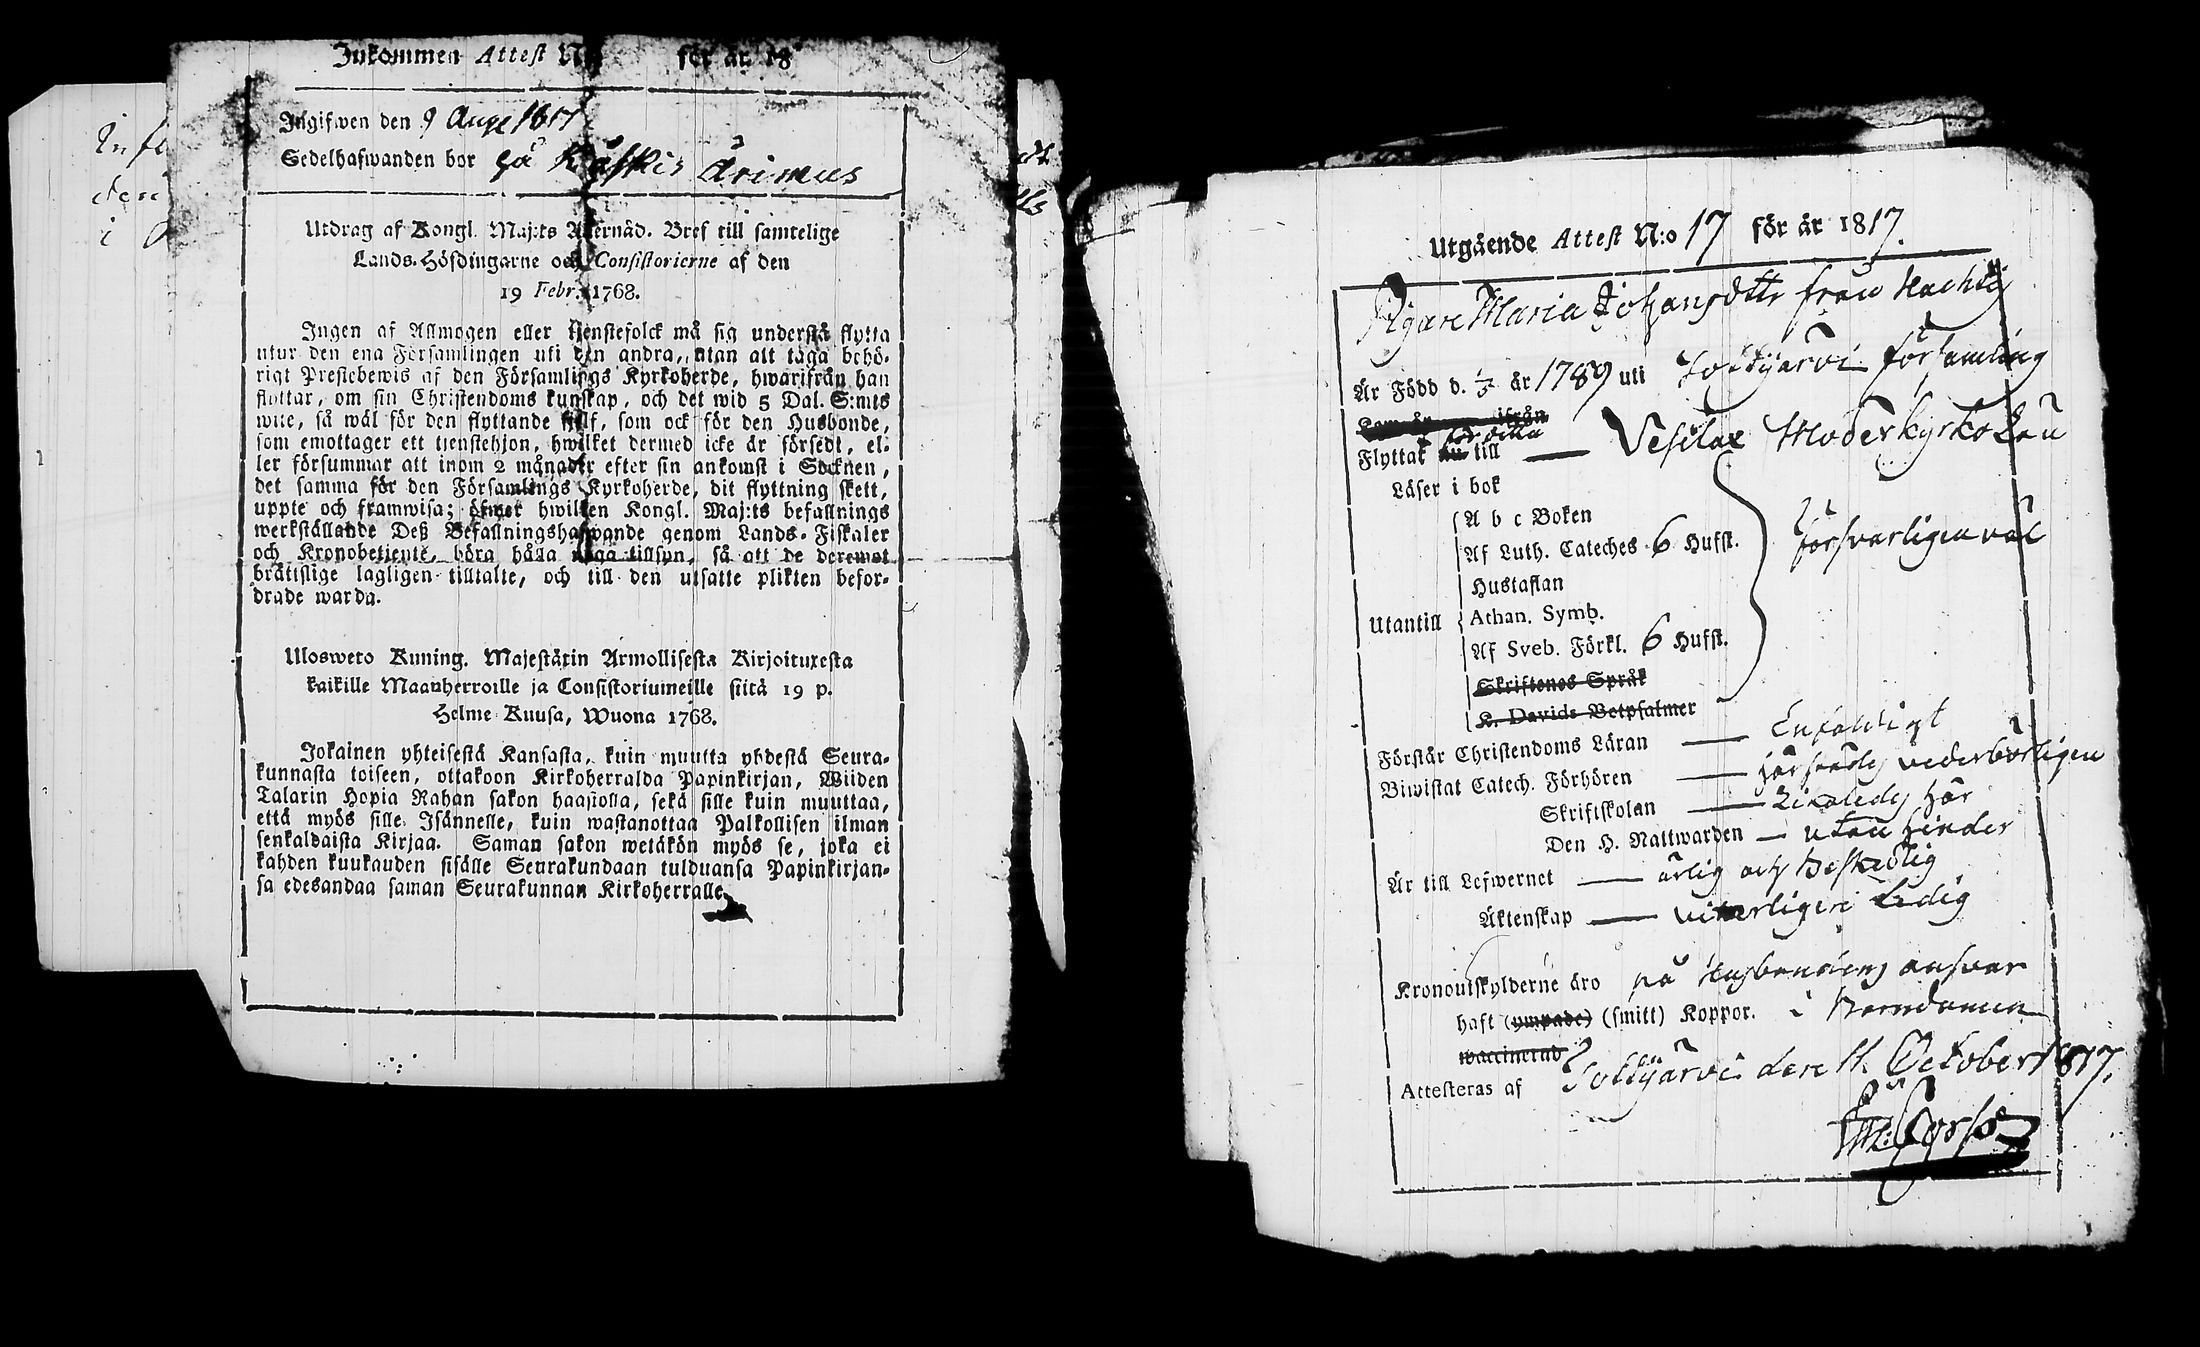 Inkommen Attest N för år 18
Ingifwen den 9 Aug 1817
Sedelhafwanden bor på Arimus
Utdrag af Kongl. Maj:ts Allernåd. Bref till samtelige
Lands-Höfdingarne och Consistorierne af den
19 Febr. 1768.
Ingen af Allmogen eller tjenstefolck må sig understå flytta
utur den ena Församlingen uti den andra, utan att taga behö-
rigt Prestebewis af den Församlings Kyrkoherde, hwarifrån han
flyttar, om sin Christendoms kunskap, och det wid 5 Dal. S:mts
wite, så wäl för den flyttande sjelf, som ock för den Husbonde,
som emottager ett tjenstehjon, hwilket dermed icke är försedt, el-
ler försummar att inom 2 månader efter sin ankomst i Socknen,
det samma för den Församlings Kyrkoherde, dit flyttning skett,
uppte och framwisa; öfwer hwilken Kongl. Maj:ts befallnings
werkställande Deß Befallningshafwande genom Lands-Fiskaler
och Kronobetjente, böra hålla noga tillsyn, så att de deremot
bråttslige lagligen tilltalte, och till den utsatte plikten befor-
drade warda.
Ulosweto Kuning. Majestätin Armollisesta Kirjoituxesta
kaikille Maanherroille ja Consistoriumeille siitä 19 p.
Helme Kuusa, Wuona 1768.
Jokainen yhteisestä Kansasta, kuin muutta yhdestä Seura-
kunnasta toiseen, ottakoon Kirkoherralda Papinkirjan, Wiiden
Talarin Hopia Rahan sakon haastolla, sekä sille kuin muuttaa,
että myös sille Isännelle, kuin wastanottaa Palkollisen ilman
senkaldaista Kirjaa. Saman sakon wetäkön myös se, joka ei
kahden kuukauden sisälle Seurakundaan tulduansa Papinkirjan-
sa edesandaa saman Seurakunnan Kirkoherralle.
Utgående Attest N:o 17 för år 1817.
Pigan Maria Johansdtr från
Är Född d. år 1789 uti Tottijärvi församling
Flyttat till Vesilax Moderkyrko
Läser i bok
A b c Boken
Af Luth. Cateches 6 Hufst. försvarligen väl
Hustaflan
Utantill Athan. Symb.
Af Sveb. Förkl. 6 Hufst.
Skriftenes Språk
K. Davids Botpsalmer
Förstår Christendoms Läran Enfaldigt
Biwistat Catech. Förhören vederbörligen
Skriftskolan här
Den H. Nattwarden utan hinder
Är till Lefwernet ärlig och beskedlig
Äktenskap veterligen Ledig
Kronoutskylderne äro på Husbondens ansvar
haft (ympade) (smitt) Koppor. i Barndomen
waccinerad
Attesteras af Tottijärvi den 11 October 1817.